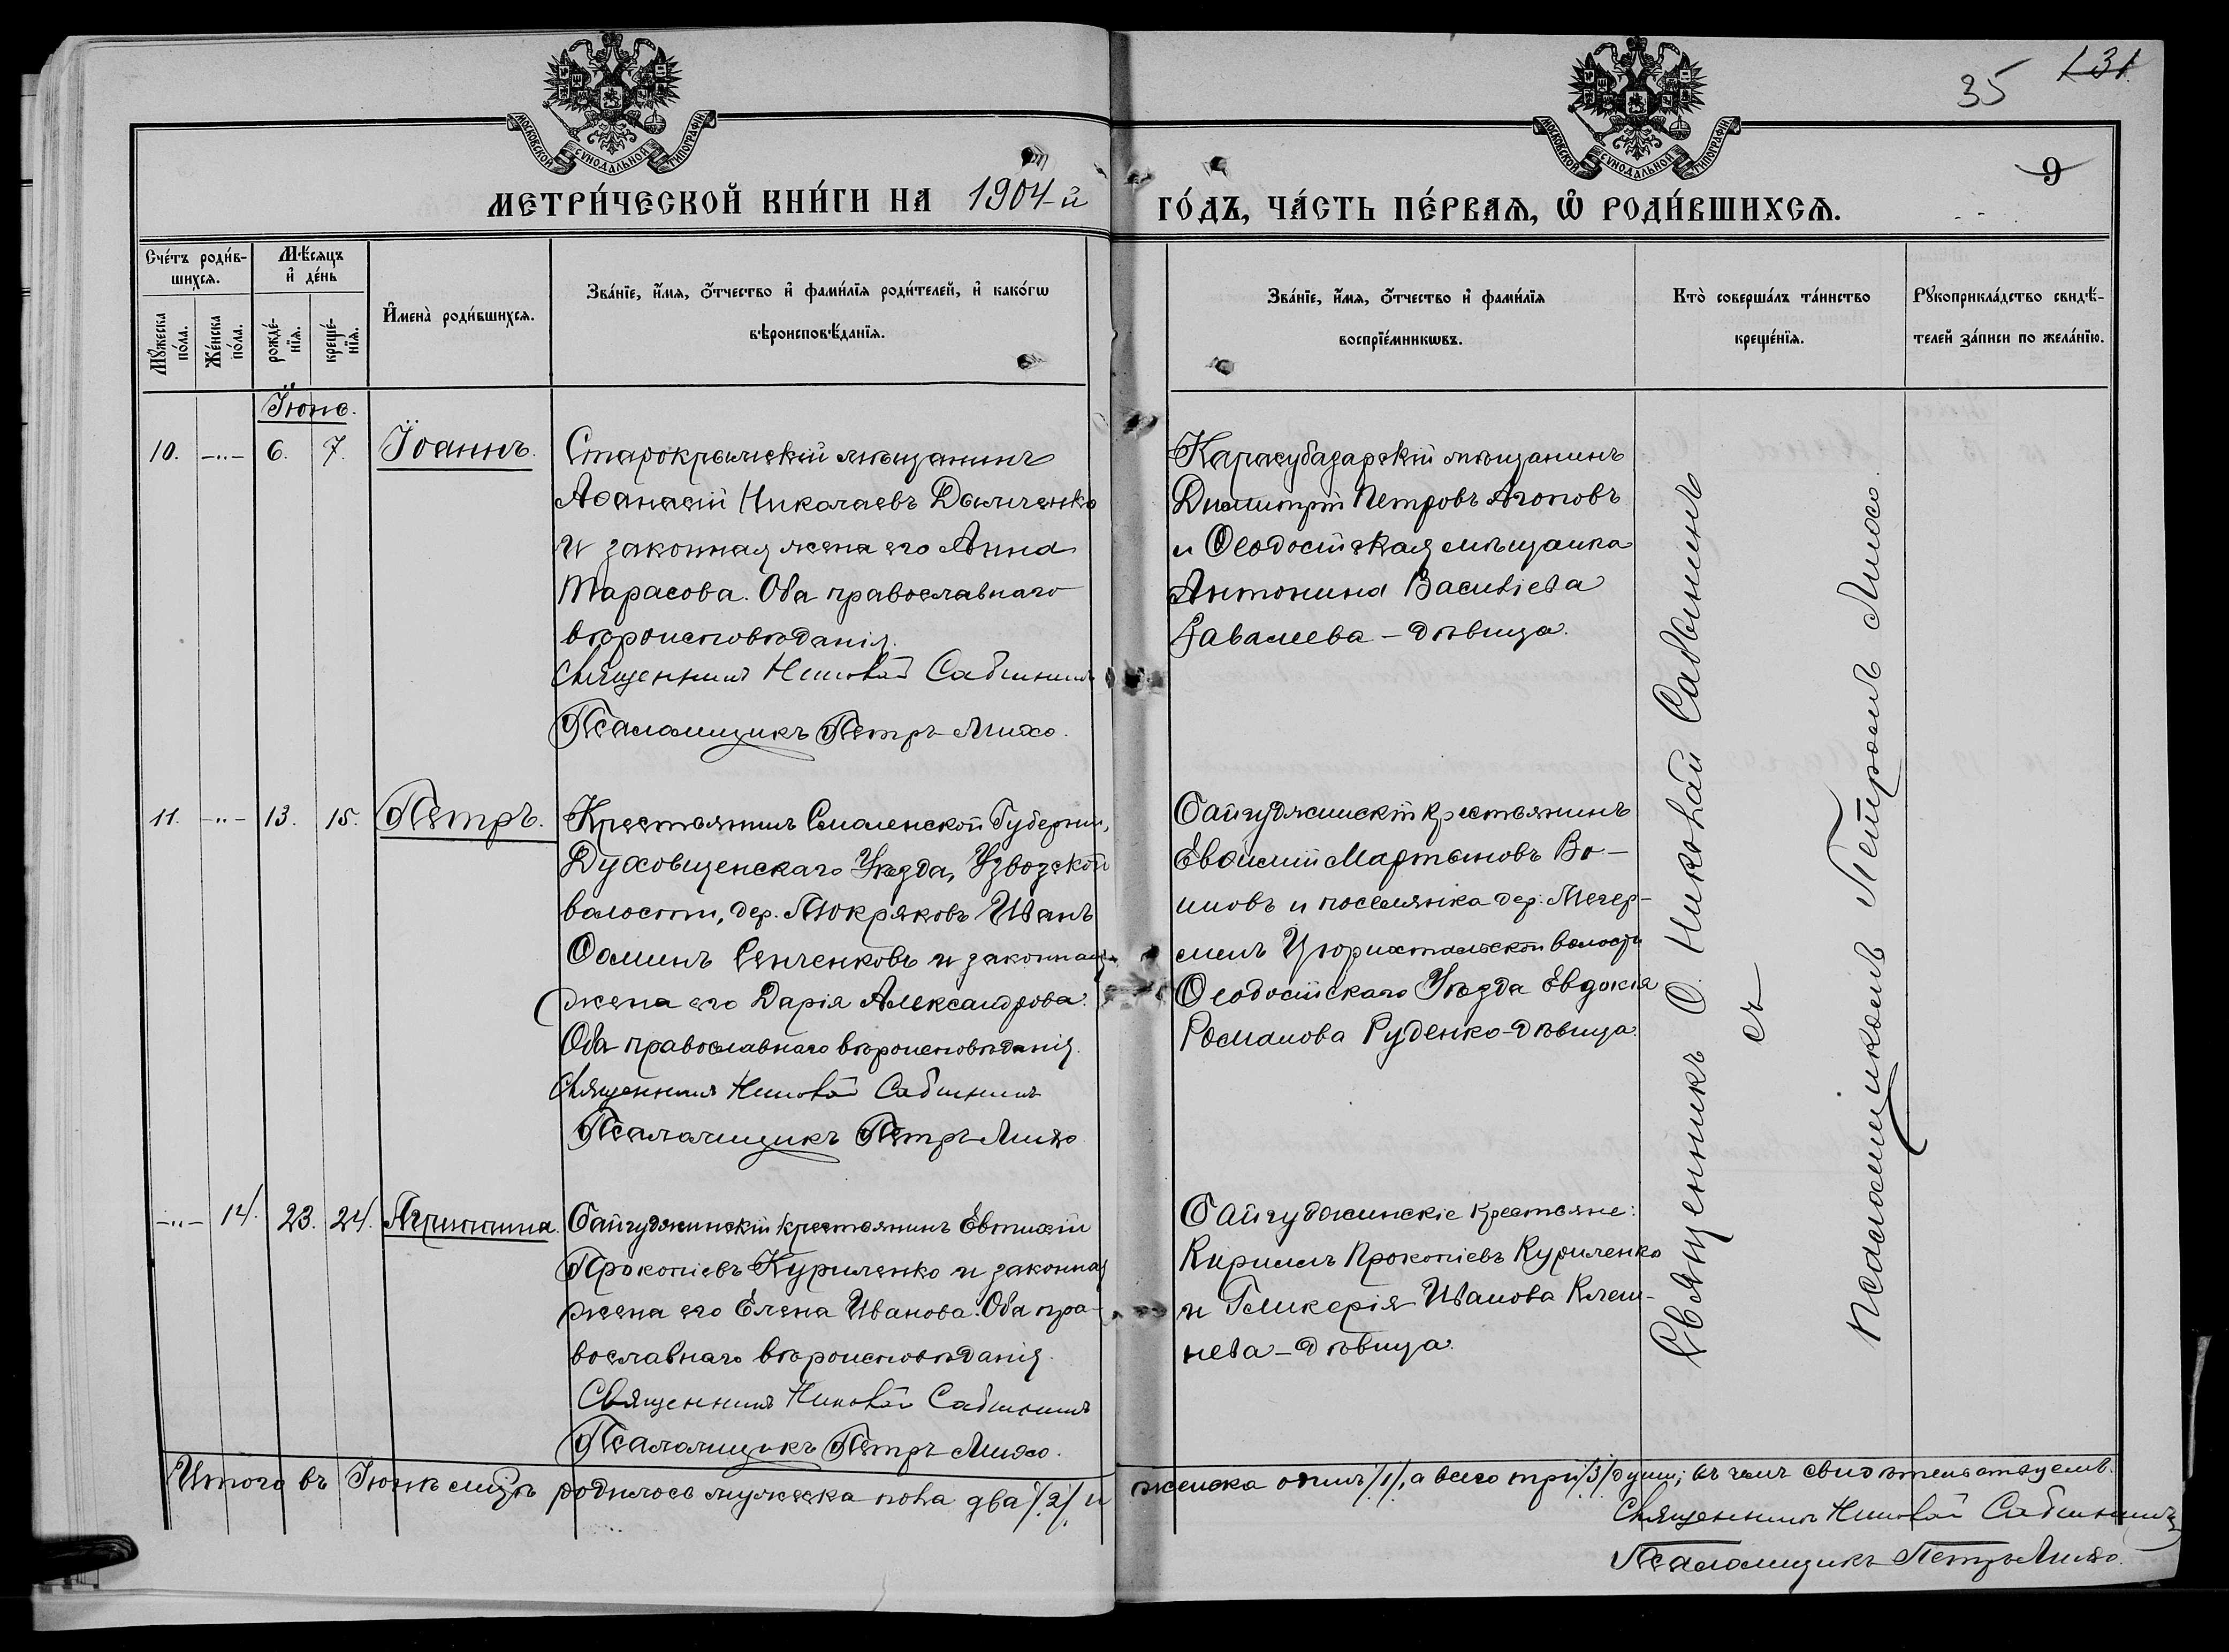 35 131
МОСКОВСКОЙ СѴНОДАЛЬНОЙ ТИПОГРАФІИ
МОСКОВСКОЙ СѴНОДАЛЬНОЙ ТИПОГРАФІИ
9
МЕТРИ́ЧЕСКОЙ КНИ́ГИ НА 1904-й ГО́ДЪ, ЧА́СТЬ ПЕ́РВАѦ, Ѡ҆ РОДИ́ВШИХСѦ.
Сче́тъ роди́в-
шихсѧ.
Мꙋ́жеска
по́ла.
Же́нска
по́ла.
Мѣ́сяцъ
и҆ де́нь
рожде́-
нїѧ.
креще́-
нїѧ.
И҆мена̀ роди́вшихсѧ.
Зва́нїе, и҆́мя, ѻ҆́тчество и҆ фами́лїя роди́телей, и҆ како́гѡ
вѣроисповѣ́данїя.
Зва́нїе, и҆́мя, ѻ҆́тчество и҆ фами́лїя
воспрїе́мникѡвъ.
Кто̀ соверша́лъ та́инство
креще́нїя.
Рꙋкоприкла́дство свидѣ́-
телей за́писи по жела́нїю.
Іюнь.
10. -"- 6. 7. Іоаннъ.
Старокрымскій мѣщанинъ
Аѳанасій Николаевъ Дымченко
и законная жена его Анна
Тарасова. Оба православнаго
вѣроисповѣданія.
Священникъ Николай Савининъ
Псаломщикъ Петръ Лихо.
Карасубазарскій мѣщанинъ
Димитрій Петровъ Агоповъ
и Ѳеодосійская мѣщанка
Антонина Васильева
Завалеева - дѣвица.
11. -"- 13. 15. Петръ.
Крестьянинъ Смоленской Губерніи,
Духовщенскаго Уѣзда, Узвозской
волости, дер. Покряковъ Иванъ
Ѳоминъ Сенченковъ и законная
жена его Дарія Александрова.
Оба православнаго вѣроисповѣданія.
Священникъ Николай Савининъ
Псаломщикъ Петръ Лихо
Байгуджинскій крестьянинъ
Евѳимій Мартыновъ Во-
иновъ и поселянка дер:
Цюрихтальской волости
Ѳеодосійскаго Уѣзда Евдокія
Романова Руденко - дѣвица.
-"- 14. 23. 24. Агриппина.
Байгуджинскій крестьянинъ Евтихій
Прокопіевъ Куриленко и законная
жена его Елена Иванова. Оба пра-
вославнаго вѣроисповѣданія.
Священникъ Николай Савининъ
Псаломщикъ Петръ Лихо.
Байгуджинскіе крестьяне:
Кириллъ Прокопіевъ Куриленко
и Гликерія Иванова Клеш-
нева - дѣвица.
Священникъ О. Николай Савининъ
съ
Псаломщикомъ Петромъ Лихо.
Итого въ Іюнѣ мцѣ родилось мужеска пола два /2/ и женска одинъ /1/, а всего три /3/ души; въ чемъ свидѣтельствуемъ.
Священникъ Николай Савининъ
Псаломщикъ Петръ Лихо.